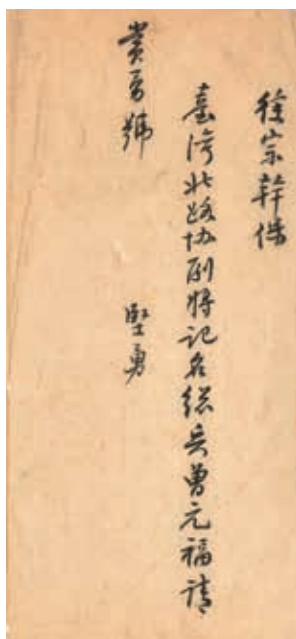 徐宗幹保
臺灣北路協副將記名總兵曾元福請
賞勇號
堅勇